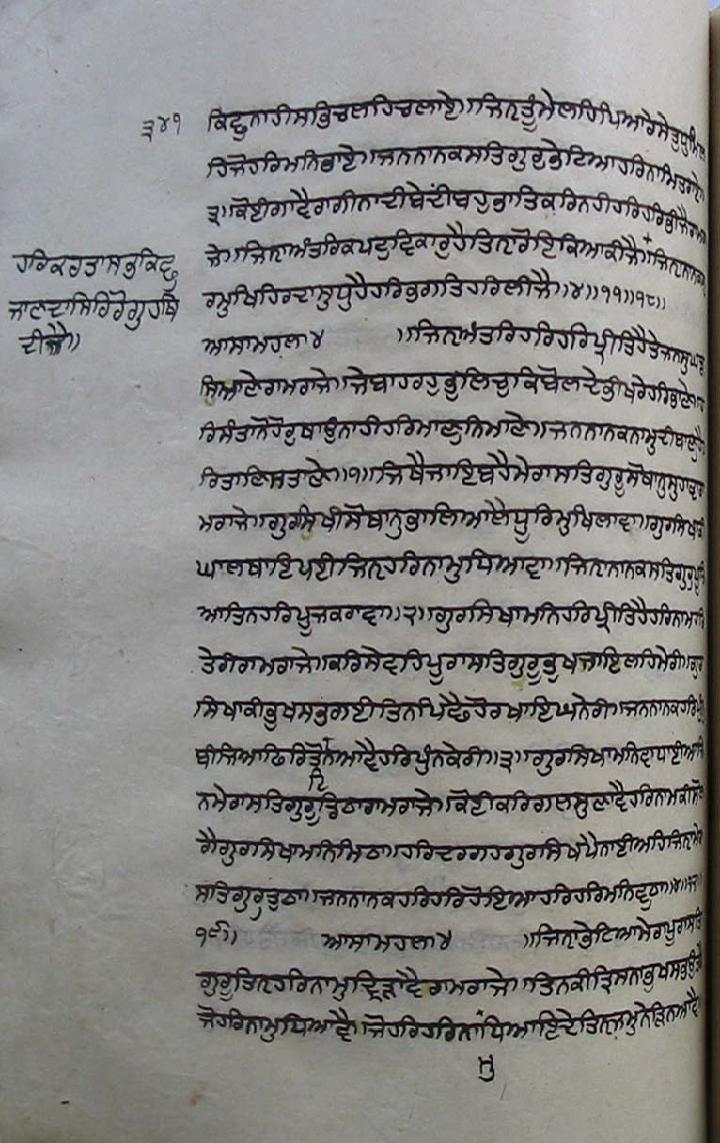 ੩੪੧
ਕਿਛੁਨਾਹੀਸਭਿਚਲਹਿਚਲਾਏ॥ਜਿਨੑਤੂੰਮੇਲਹਿਪਿਆਰੇਸੇਤੁਧੁਮਿਲ
ਹਿਜੋਹਰਿਮਨਿਭਾਏ॥ਜਨਨਾਨਕਸਤਿਗੁਰੁਭੇਟਿਆਹਰਿਨਾਮਿਤਰਾਏ॥
੩॥ਕੋਈਗਾਵੈਰਾਗੀਨਾਦੀਬੇਦੀਬਹੁਭਾਤਿਕਰਿਨਹੀਹਰਿਹਰਿਭੀਜੈਰਾਮਰਾ
ਜੇ॥ਜਿਨਾਅੰਤਰਿਕਪਟੁਵਿਕਾਰੁਹੈਤਿਨਾਰੋਇਕਿਆਕੀਜੈ॥
ਹਰਿਕਰਤਾਸਭੁਕਿਛੁ
ਜਾਣਦਾਸਿਰਿਰੋਗੁਹਥੁ
ਦੀਜੈ॥
ਜਿਨਾਨਾਨਕਗੁ
ਰਮੁਖਿਹਿਰਦਾਸੁਧੁਹੈਹਰਿਭਗਤਿਹਰਿਲੀਜੈ॥੪॥੧੧॥੧੮॥
ਆਸਾਮਹਲਾ੪ ॥ਜਿਨਅੰਤਰਿਹਰਿਹਰਿਪ੍ਰੀਤਿਹੈਤੇਜਨਸੁਘੜ
ਸਿਆਣੇਰਾਮਰਾਜੇ॥ਜੇਬਾਹਰਹੁਭੁਲਿਚੁਕਿਬੋਲਦੇਭੀਖਰੇਹਰਿਭਾਣੇ॥ਹ
ਰਿਸੰਤਾਨੋਹੋਰੁਥਾਉਨਾਹੀਹਰਿਮਾਣੁਨਿਮਾਣੇ॥ਜਨਨਾਨਕਨਾਮੁਦੀਬਾਣੁਹੈ
ਰਿਤਾਣਿਸਤਾਣੇ॥੧॥ਜਿਥੈਜਾਇਬਹੈਮੇਰਾਸਤਿਗੁਰੂਸੋਥਾਨੁਸੁਹਾਵਾਰਾ
ਮਰਾਜੇ॥ਗੁਰਸਿਖੀਸੋਥਾਨੁਭਾਲਿਆਲੈਧੂਰਿਮੁਖਿਲਾਵਾ॥ਗੁਰਸਿਖਾਕੀ
ਘਾਲਥਾਇਪਈਜਿਨਹਰਿਨਾਮੁਧਿਆਵਾ॥ਜਿਨਾਨਾਨਕਸਤਿਗੁਰੁਪੂਜਿ
ਆਤਿਨਹਰਿਪੂਜਕਰਾਵਾ॥੨॥ਗੁਰਸਿਖਾਮਨਿਹਰਿਪ੍ਰੀਤਿਹੈਹਰਿਨਾਮਹਰਿ
ਤੇਰੀਰਾਮਰਾਜੇ॥ਕਰਿਸੇਵਹਿਪੂਰਾਸਤਿਗੁਰੂਭੁਖਜਾਇਲਹਿਮੇਰੀ॥ਗੁਰ
ਸਿਖਾਕੀਭੁਖਸਭਗਈਤਿਨਪਿਛੈਹੋਰਖਾਇਘਨੇਰੀ॥ਜਨਨਾਨਕਹਰਿਪੁੰਨੁ
ਬੀਜਿਆਫਿਰਿਤੋਟਿਨਆਵੈਹਰਿਪੁੰਨਕੇਰੀ॥੩॥ਗੁਰਸਿਖਾਮਨਿਵਾਧਾਈਆਜਿ
ਨਮੇਰਾਸਤਿਗੁਰੂਡਿਠਾਰਾਮਰਾਜੇ॥ਕੋਈਕਰਿਗਲਸੁਣਾਵੈਹਰਿਨਾਮਕੀਸੋਲ
ਗੈਗੁਰਸਿਖਾਮਨਿਮਿਠਾ॥ਹਰਿਦਰਗਹਗੁਰਸਿਖਪੈਨਾਈਅਹਿਜਿਨਾਮੇਰਾ
ਸਤਿਗੁਰੁਤੁਠਾ॥ਜਨਨਾਨਕਹਰਿਹਰਿਹੋਇਆਹਰਿਹਰਿਮਨਿਵੁਠਾ॥੪॥੧੨॥
੧੯॥ ਆਸਾਮਹਲਾ੪ ॥ਜਿਨਾਭੇਟਿਆਮੇਰਾਪੂਰਾਸਤਿ
ਗੁਰੂਤਿਨਹਰਿਨਾਮੁਦ੍ਰਿੜਾਵੈਰਾਮਰਾਜੇ॥ਤਿਨਕੀਤ੍ਰਿਸਨਾਭੁਖਸਭਉਤਰੈ
ਜੋਹਰਿਨਾਮੁਧਿਆਵੈ॥ਜੋਹਰਿਹਰਿਨਾਮੁਧਿਆਇਦੇਤਿਨਜਮੁਨੇੜਿਨਆਵੈ
ਮੁ